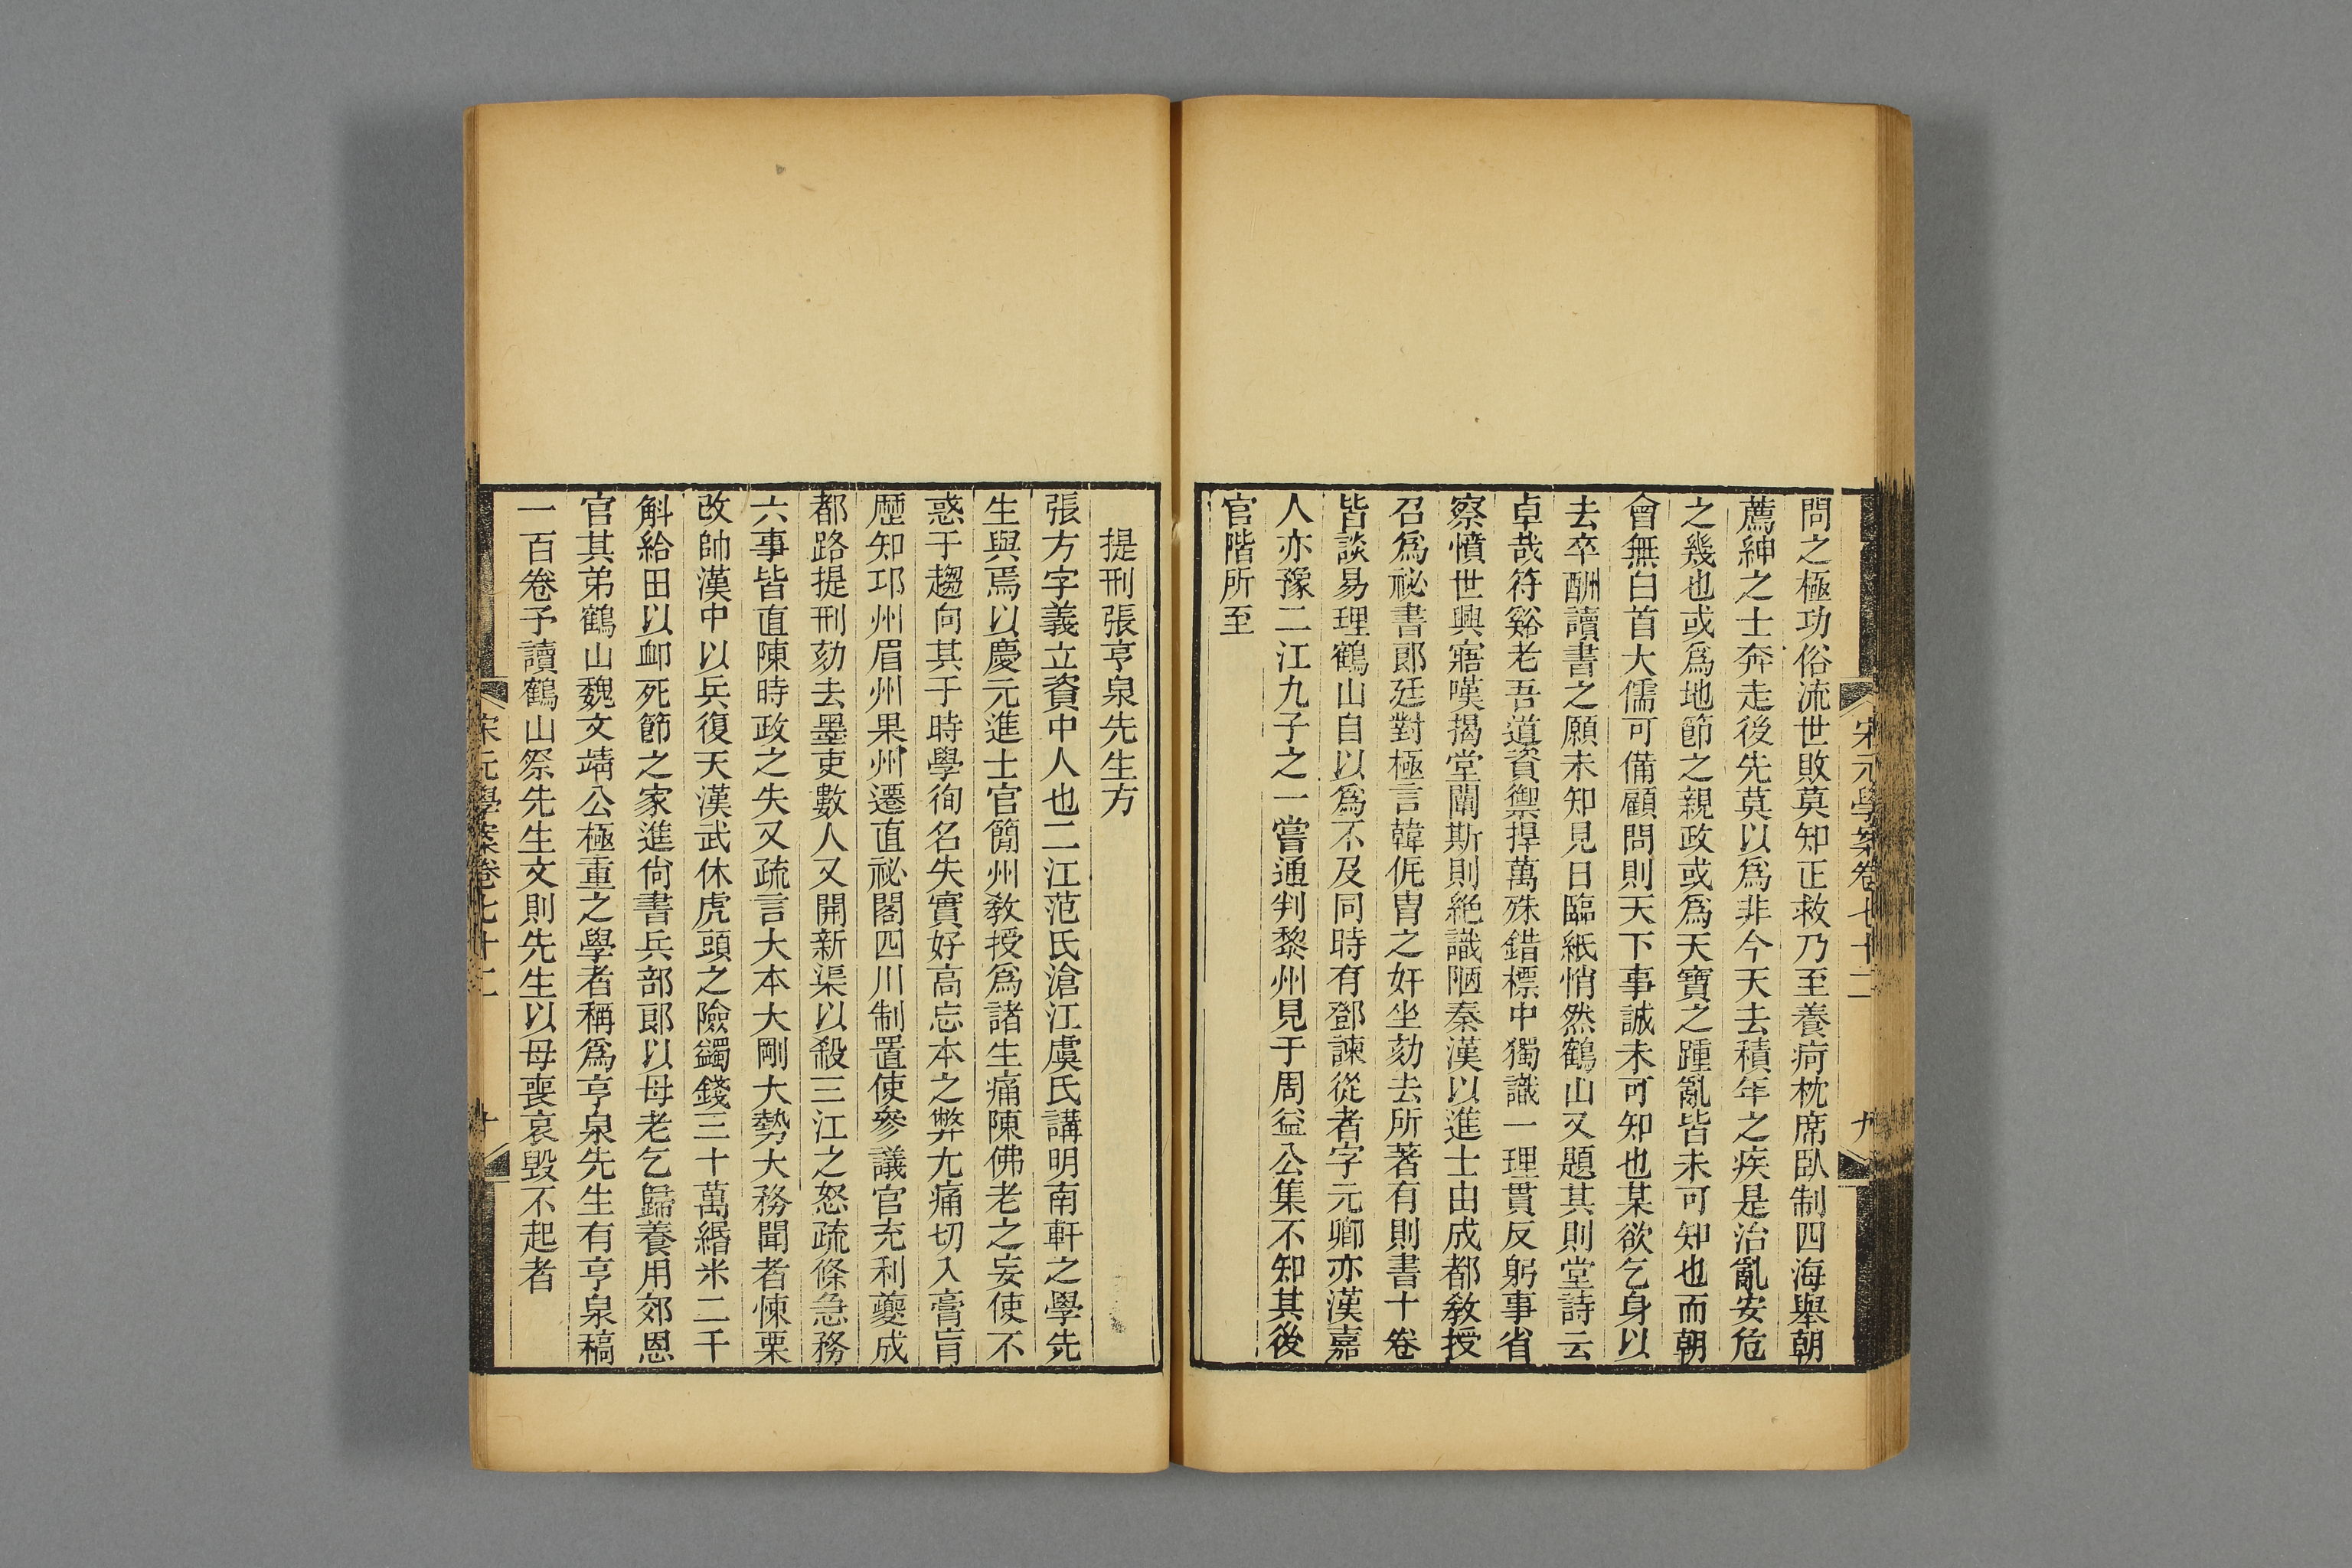 宋元學案卷七十二
九
問之極功俗流世敗莫知正救乃至養疴枕席臥制四海舉朝
薦紳之士奔走後先莫以爲非今天去積年之疾是治亂安危
之幾也或爲地節之親政或爲天寶之踵亂皆未可知也而朝
會無白首大儒可備顧問則天下事誠未可知也某欲乞身以
去卒酬讀書之願未知見日臨紙悄然鶴山又題其則堂詩云
卓哉符谿老吾道資禦捍萬殊錯標中獨識一理貫反躬事省
察憤世興寤嘆揭堂闡斯則絶識陋秦漢以進士由成都敎授
召爲祕書郎廷對極言韓侂冑之奸坐劾去所著有則書十卷
皆談易理鶴山自以爲不及同時有鄧諫從者字元卿亦漢嘉
人亦豫二江九子之一嘗通判黎州見于周益公集不知其後
官階所至
提刑張亨泉先生方
張方字義立資中人也二江范氏滄江虞氏講明南軒之學先
生與焉以慶元進士官簡州敎授爲諸生痛陳佛老之妄使不
惑于趨向其于時學徇名失實好高忘本之弊尢痛切入膏肓
歷知邛州眉州果州遷直祕閣四川制置使參議官充利夔成
都路提刑劾去墨吏數人又開新渠以殺三江之怒疏條急務
六事皆直陳時政之失又疏言大本大剛大勢大務聞者悚栗
改帥漢中以兵復天漢武休虎頭之險蠲錢三十萬緡米二千
斛給田以卹死節之家進尙書兵部郎以母老乞歸養用郊恩
官其弟鶴山魏文靖公極重之學者稱爲亨泉先生有亨泉稿
一百卷予讀鶴山祭先生文則先生以母喪哀毀不起者
宋元學案卷七十二
十